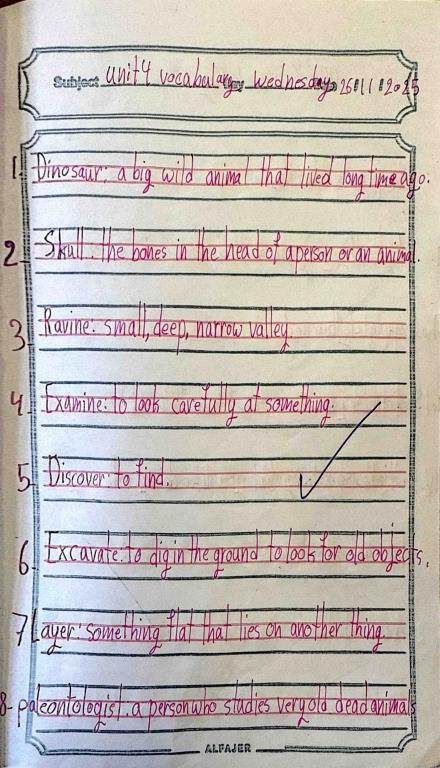 Subject unit 4 vocabulary Day wednesday 26/11/2025
1. Dinosaur: a big wild animal that lived long time ago.
2. Skull. the bones in the head of a person or an animal.
3. Ravine. small, deep, narrow valley
4. Examine. to look carefully at something.
5. Discover to find.
6. Excavate. to dig in the ground to look for old objects.
7 Layer: something flat that lies on another thing
8- paleontologist. a person who studies very old dead animals
ALFAJER